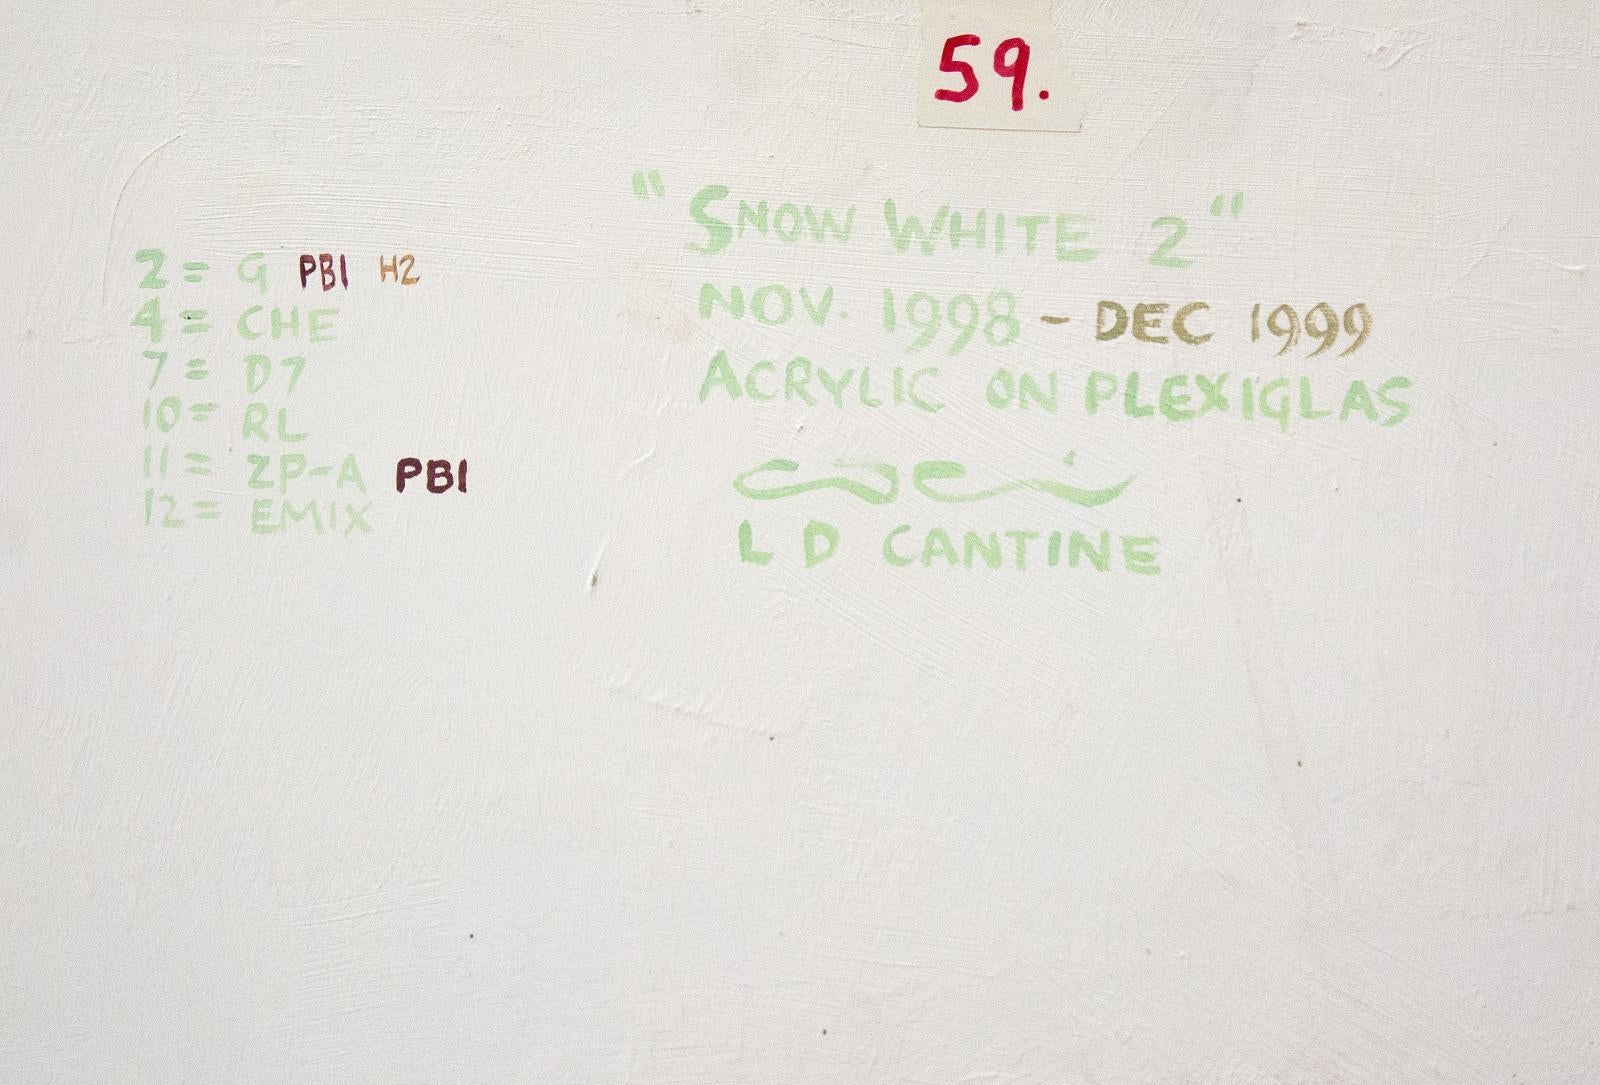 59.
"SNOW WHITE 2"
NOV. 1998 - DEC 1999
ACRYLIC ON PLEXIGLAS
L D CANTINE
2 = G PB1 H2
4 = CHE
7 = D7
10 = RL
11 = 2P-A PB1
12 = EMIX